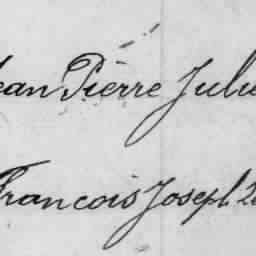 Jean Pierre Julie
François Joseph